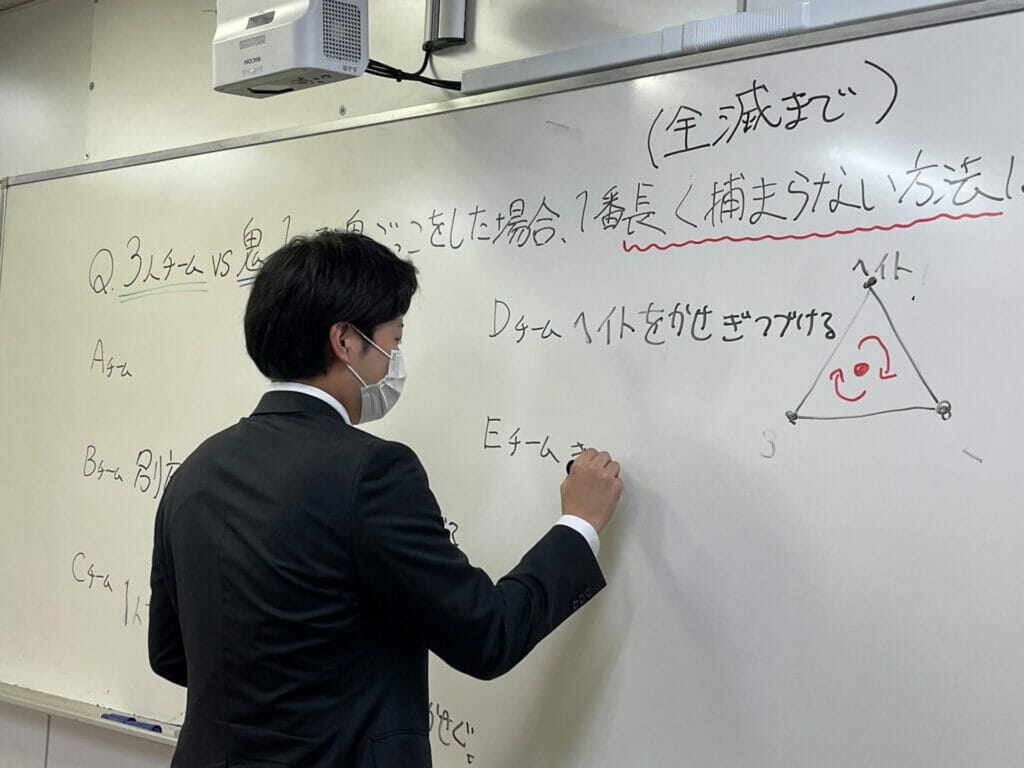 RICOH
(全滅まで)
Q. 3人チーム VS 鬼 ごっこをした場合、1番長く捕まらない方法
Aチーム
Bチーム 別
Cチーム
1人
かせぐ。
Dチーム ヘイトをかせぎつづける
ヘイト
3
Eチーム